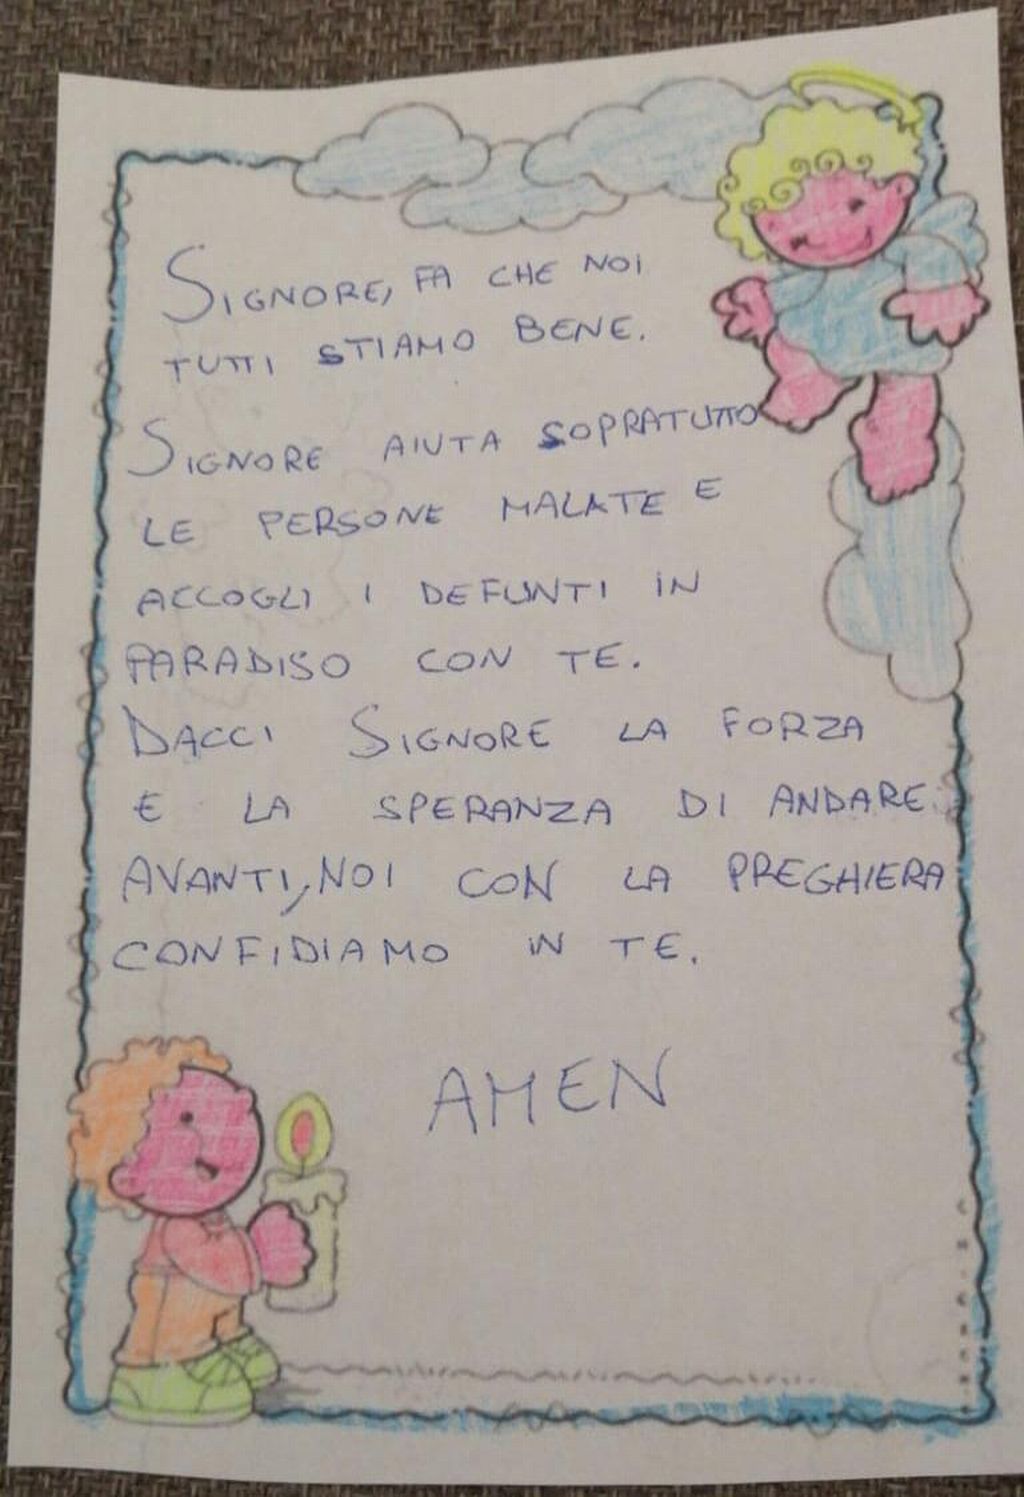 SIGNORE, FA CHE NOI
TUTTI STIAMO BENE.
SIGNORE AIUTA SOPRATUTTO
LE PERSONE MALATE E
ACCOGLI I DEFUNTI IN
PARADISO CON TE.
DACCI SIGNORE LA FORZA
E LA SPERANZA DI ANDARE
AVANTI, NOI CON LA PREGHIERA
CONFIDIAMO IN TE.
AMEN